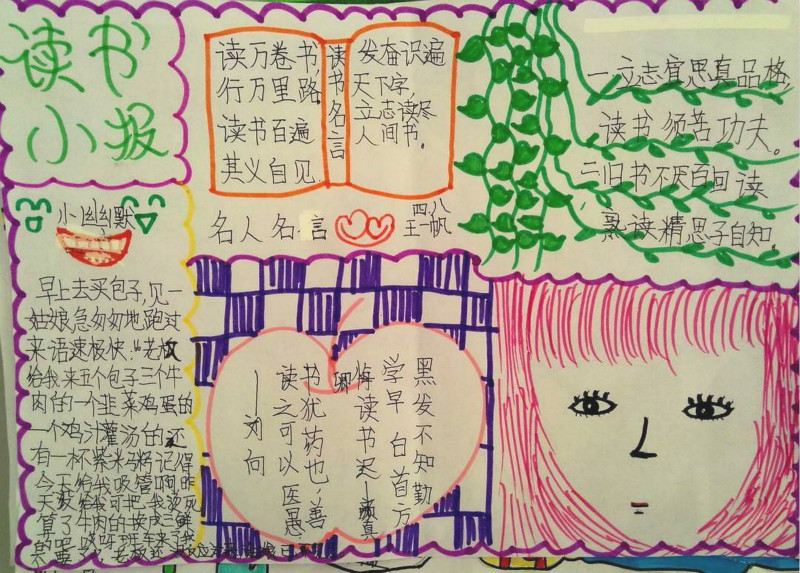 读书
小报
读万卷书,
行万里路
读书百遍
其义自见
读书名言
发奋识遍
天下字,
立志读尽
人间书。
一立志宜思真品格
读书须苦功夫。
二旧书不厌百回读
熟读精思子自知
名人名言
四八
王一帆
小幽默
早上去买包子,见一
姑娘急匆匆地跑过
来语速极快:"老板
给我来五个包子三个牛
肉的一个韭菜鸡蛋的
一个鸡汁灌汤的还
有一杯紫米粥记得
今天给我吸管啊昨
天没给我可把我烫死
算了牛肉的换成三鲜
哎呀班车来了我
不要了,老板还没反应过来
黑发不知勤
学早 白首方
悔读书迟—颜真
卿
书犹药也,善
读之可以医愚
——刘向